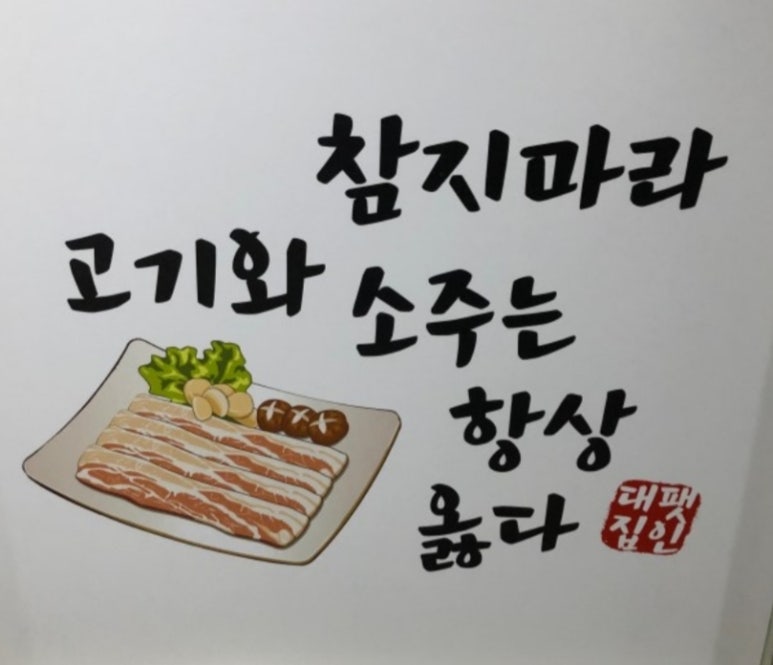 참지마라
고기와 소주는
항상
옳다
대팻
집인